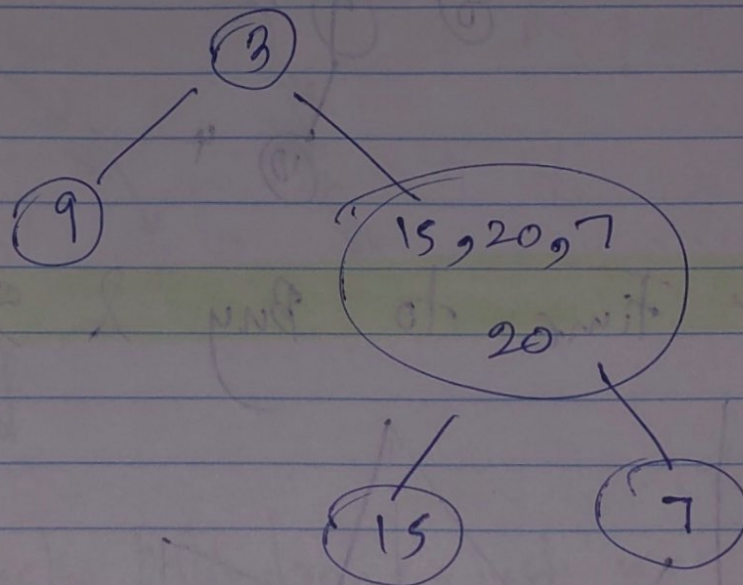 3
9
15,20,7
20
15
7